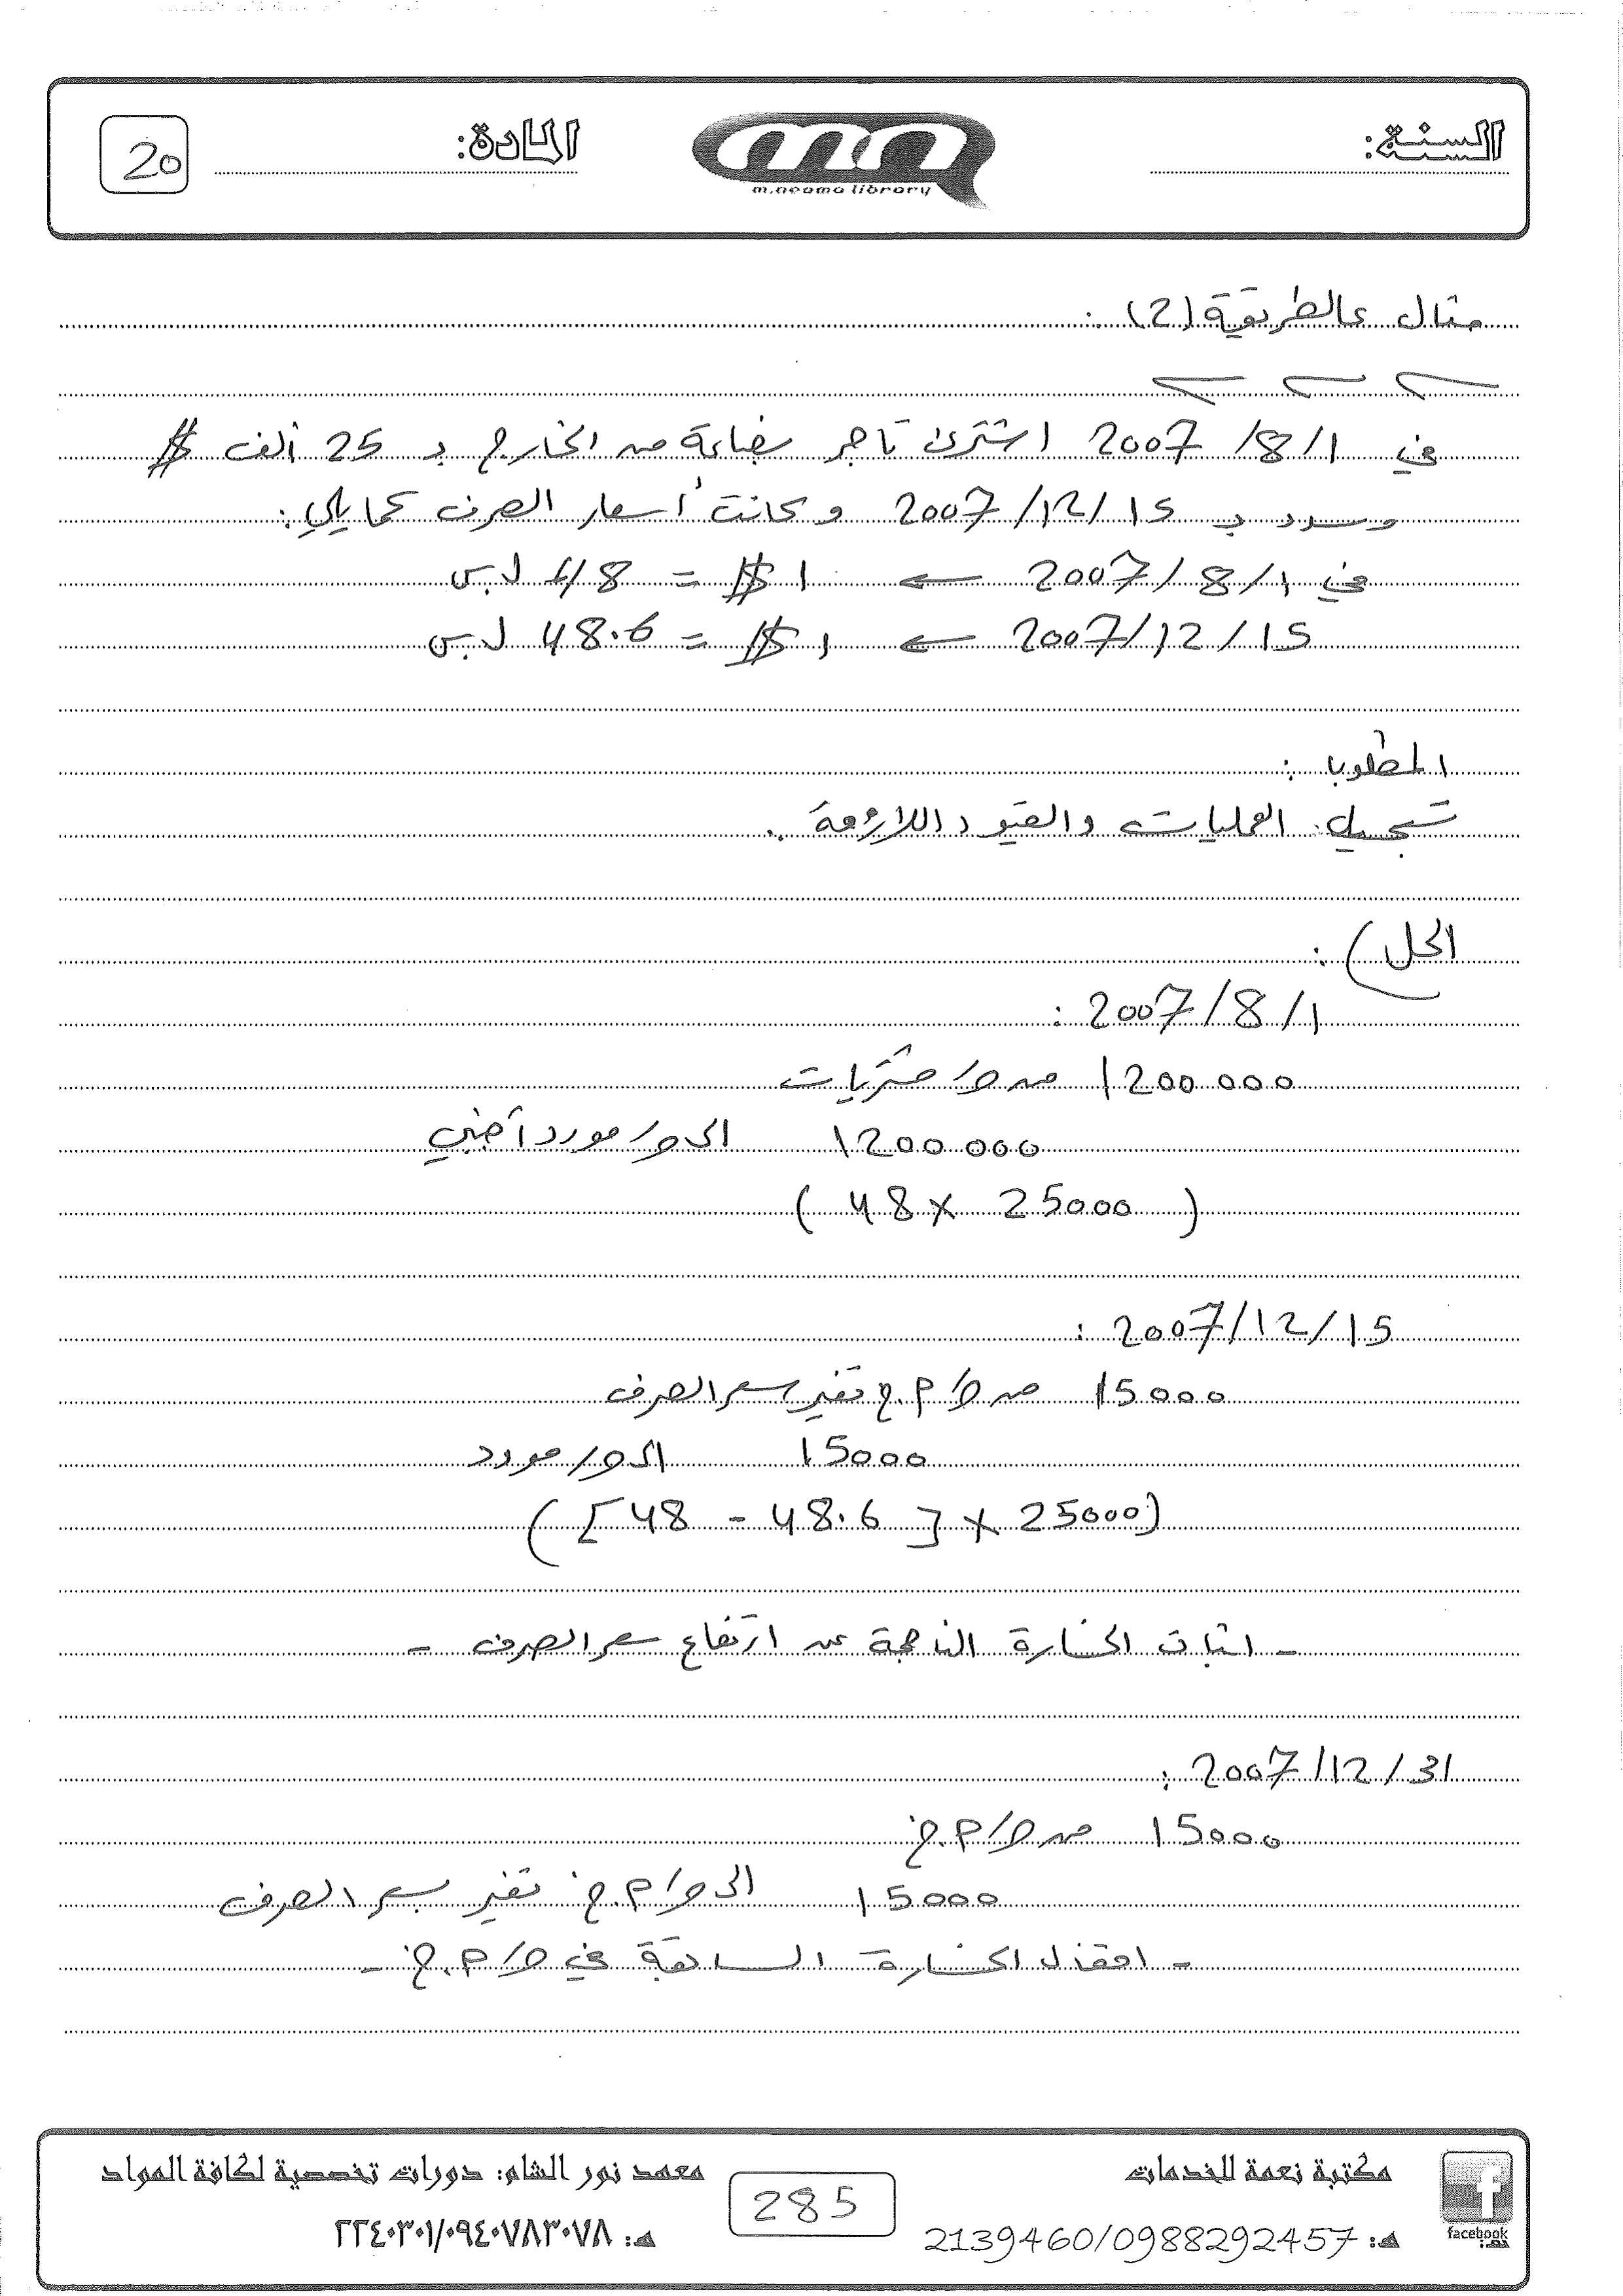 السنة:
m.neama library
المادة:
20
مثال عالطريقة (2) :
في 1/8/2007 اشترى تاجر بضاعة من الخارج بـ 25 ألف $
وسدد بـ 15/12/2007 وكانت أسعار الصرف كمايلي :
في 1/8/2007 ← 1 $ = 48 ل.س
15/12/2007 ← 1 $ = 48.6 ل.س
المطلوب :
تسجيل العمليات والقيود اللازمة .
الحل ) :
1/8/2007 :
1200000 من ح/ مشتريات
1200000 الى ح/ مورد أجنبي
( 25000 × 48 )
15/12/2007 :
15000 من ح/ م.خ تغير سعر الصرف
15000 الى ح/ مورد
(25000 × [48.6 - 48])
- اثبات الخسارة الناجمة عن ارتفاع سعر الصرف -
31/12/2007 :
15000 من ح/ م.خ
15000 الى ح/ م.خ تغير سعر الصرف
- اقفال الخسارة السابقة في ح/ م.خ -
facebook
مكتبة نعمة للخدمات
هـ: 2139460/0988292457
285
معهد نور الشام: دورات تخصصية لكافة المواد
هـ: ٢٢٤٠٣٠١/٠٩٤٠٧٨٣٠٧٨